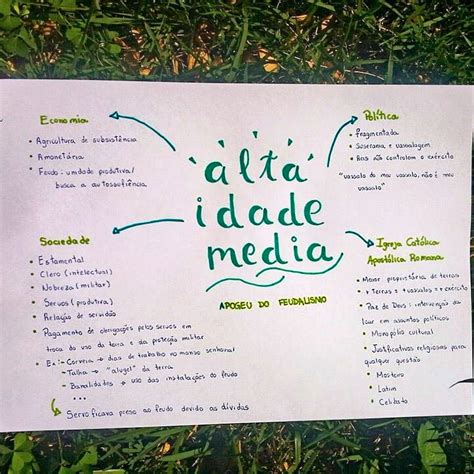 alta
idade
media
APOGEU DO FEUDALISMO
Economia
• Agricultura de subsistência
• Amonetária
• Feudo: unidade produtiva/
busca a autossuficiência
Política
• Fragmentada
• Suserania e vassalagem
• Reis não controlam o exército
"vassalo do meu vassalo, não é meu
vassalo"
Sociedade
• Estamental
• Clero (intelectual)
• Nobreza (militar)
• Servos (produtiva)
• Relação de servidão
• Pagamento de obrigações pelos servos em
troca do uso da terra e da proteção militar
• Ex: - Corveia → dias de trabalho no manso senhorial
- Talha → "aluguel" da terra
- Banalidades → uso das instalações do feudo
...
Servo ficava preso ao feudo devido as dívidas
Igreja Católica
Apostólica Romana
• Maior proprietária de terras
• + Terras = + vassalos = + exército
• Paz de Deus: intervenção do
clero em assuntos políticos
• Monopólio cultural
• Justificativas religiosas para
qualquer questão
• Mosteiro
• Latim
• Celibato